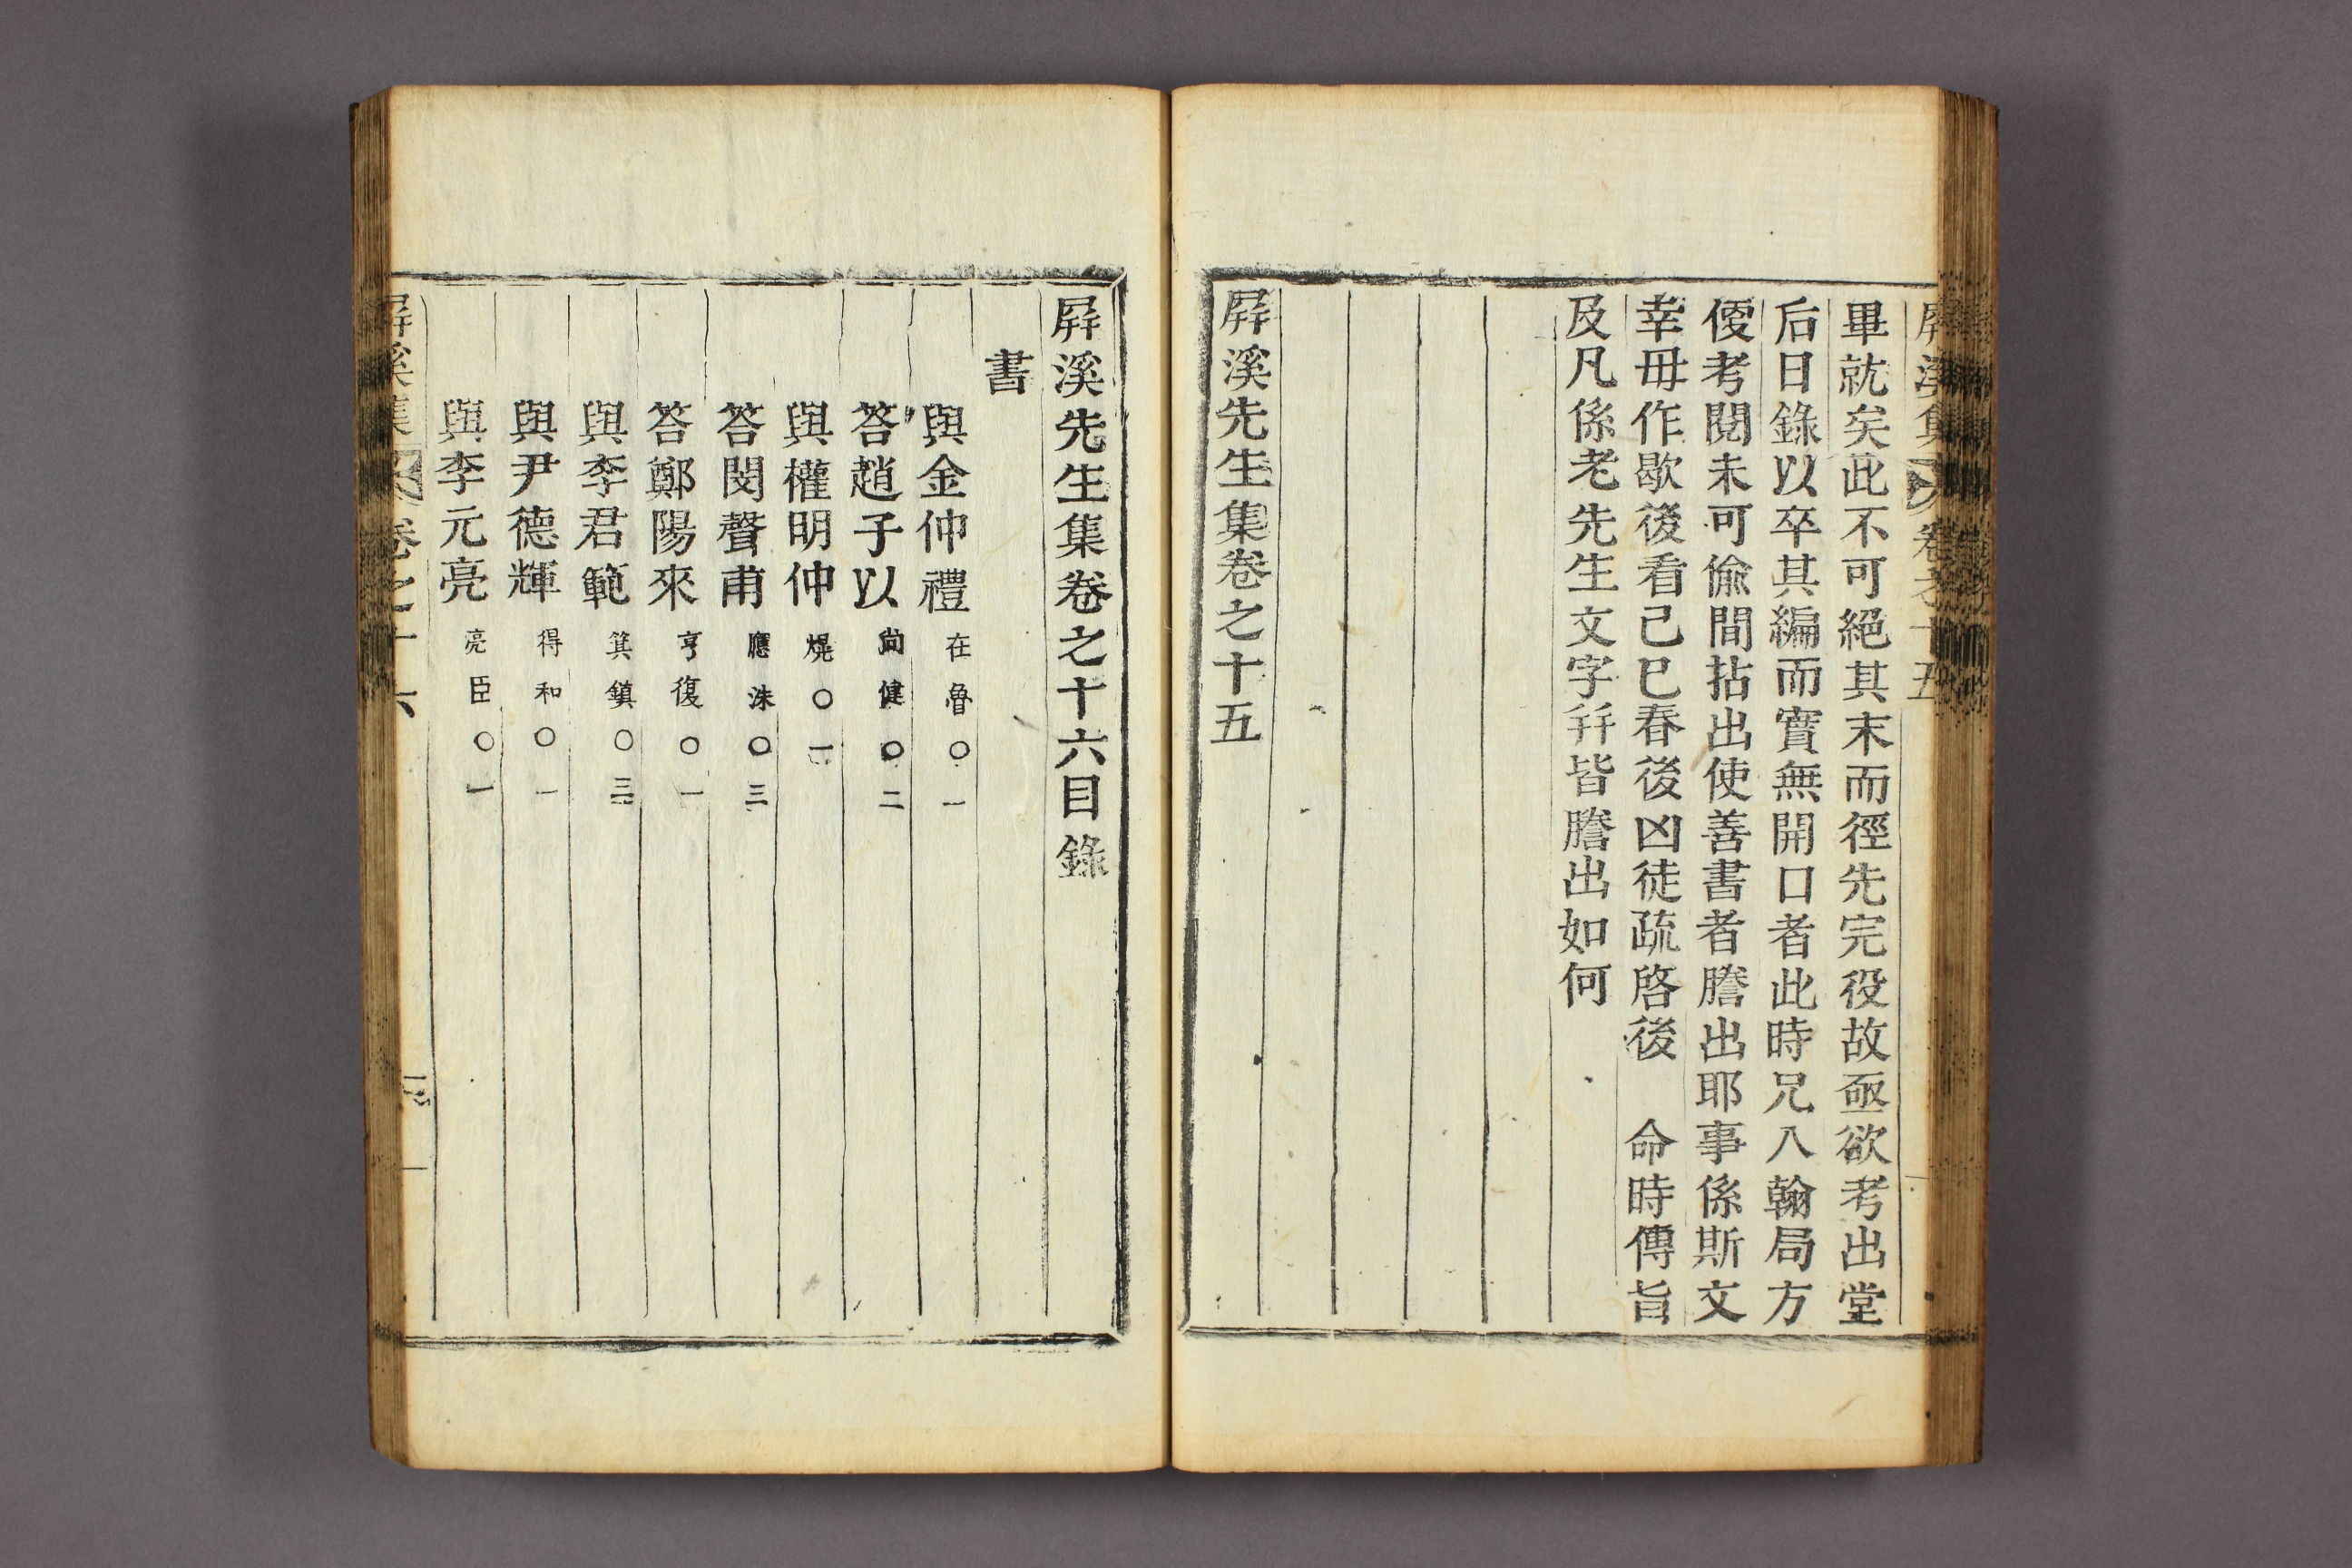 屛溪集 卷之十五
畢就矣此不可絕其末而徑先完役故亟欲考出堂
后日錄以卒其編而實無開口者此時兄入翰局方
便考閱未可偸間拈出使善書者謄出耶事係斯文
幸毋作歇後看己巳春後凶徒疏啓後 命時傳旨
及凡係老先生文字幷皆謄出如何
屛溪先生集卷之十五
屛溪先生集卷之十六目錄
書
與金仲禮 在魯○一
答趙子以 尙健○二
與權明仲 熀○一
答閔聲甫 應洙○三
答鄭陽來 亨復○一
與李君範 箕鎭○三
與尹德輝 得和○一
與李元亮 亮臣○一
屛溪集 卷之十六